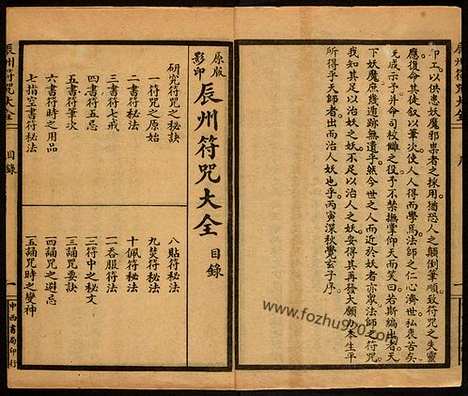 印工以供患妖魔邪祟者之採用猶恐人之顛倒筆順致符咒之失靈
應復命其徒叙以筆次使人人得而學焉法師之仁心濟世私衷苦矣
天下妖魔庶幾遁跡無遺乎然今世之人而近於妖者亦衆法師之符咒
其足以治妖之妖不足以治人之妖安得其再發大願力本生平
所得乎天師者出而治人妖也乎丙寅深秋覺玄子序
原版
影印
辰州符咒大全
目錄
研究符咒之秘訣
一符咒之原始
二書符秘法
三書符七戒
四書符五忌
五書符筆次
六書符時之用品
七指空書符秘法
八貼符秘法
九焚符秘法
十佩符秘法
二吞服符法
三符中之秘文
三誦咒要訣
四誦咒之避忌
五誦咒時之變神
辰州符咒大全
目錄
一
中西書局印行
辰州符咒大全
www.fozhu920.com